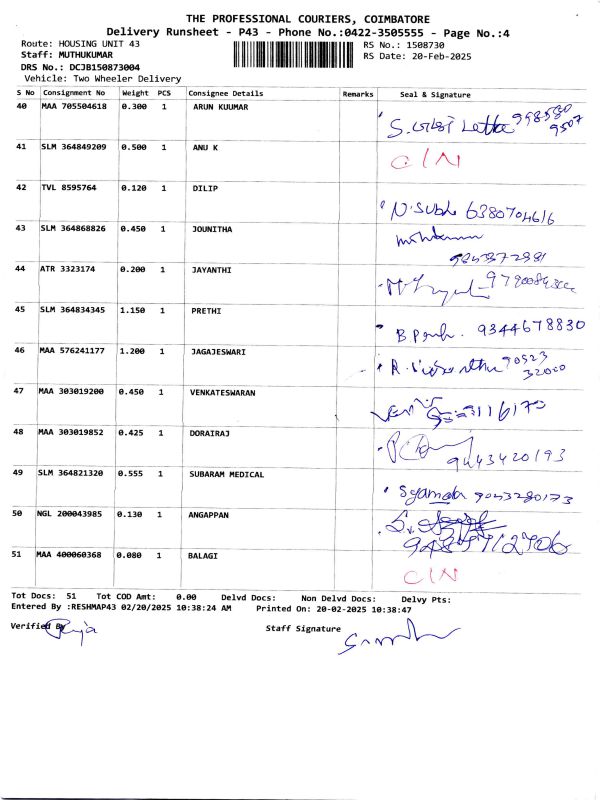 THE PROFESSIONAL COURIERS, COIMBATORE
Delivery Runsheet - P43 - Phone No.:0422-3505555 - Page No.:4
Route: HOUSING UNIT 43 RS No.: 1508730
Staff: MUTHUKUMAR RS Date: 20-Feb-2025
DRS No.: DCJB150873004
Vehicle: Two Wheeler Delivery
S No Consignment No Weight PCS Consignee Details Remarks Seal & Signature
40 MAA 705504618 0.300 1 ARUN KUUMAR
41 SLM 364849209 0.500 1 ANU K C/N
42 TVL 8595764 0.120 1 DILIP N.Subh 6380704616
43 SLM 364868826 0.450 1 JOUNITHA
44 ATR 3323174 0.200 1 JAYANTHI
45 SLM 364834345 1.150 1 PRETHI 9344678830
46 MAA 576241177 1.200 1 JAGAJESWARI
47 MAA 303019200 0.450 1 VENKATESWARAN
48 MAA 303019852 0.425 1 DORAIRAJ 9443420193
49 SLM 364821320 0.555 1 SUBARAM MEDICAL Syamala 9043280173
50 NGL 200043985 0.130 1 ANGAPPAN
51 MAA 400060368 0.080 1 BALAGI C/N
Tot Docs: 51 Tot COD Amt: 0.00 Delvd Docs: Non Delvd Docs: Delvy Pts:
Entered By :RESHMAP43 02/20/2025 10:38:24 AM Printed On: 20-02-2025 10:38:47
Verified By Staff Signature